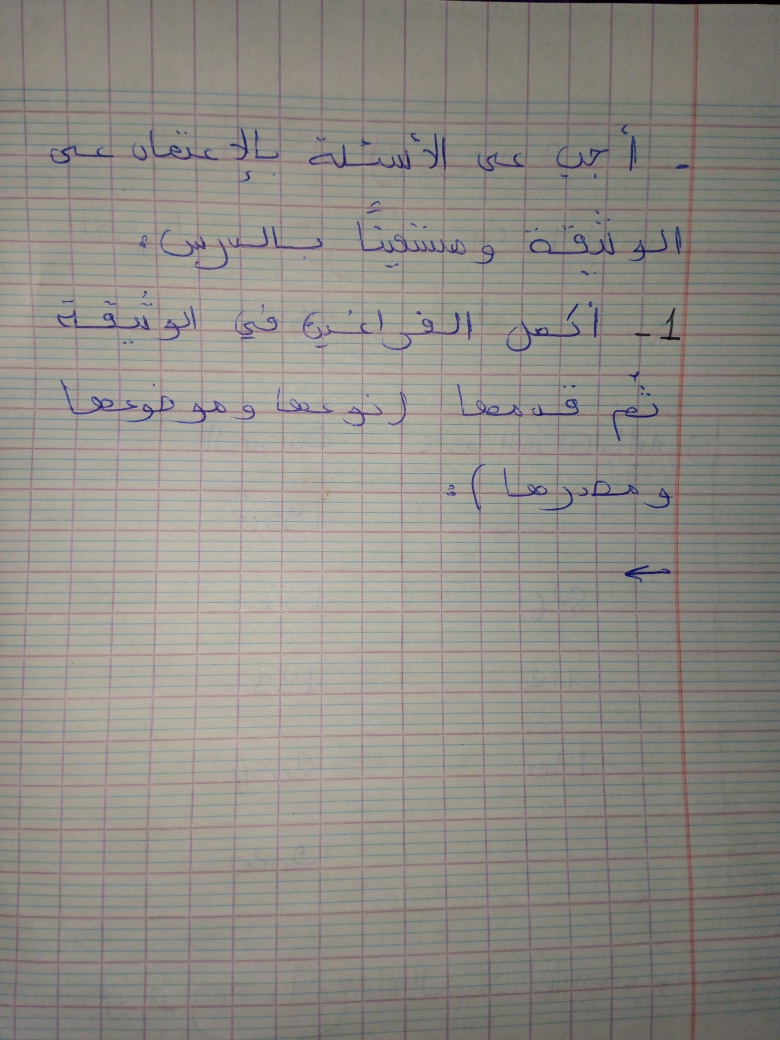 - أجب على الأسئلة بالإعتماد على
الوثيقة ومستعينًا بالدرس:
1- أكمل الفراغين في الوثيقة
ثم قدمها (نوعها وموضوعها
ومصدرها):
←